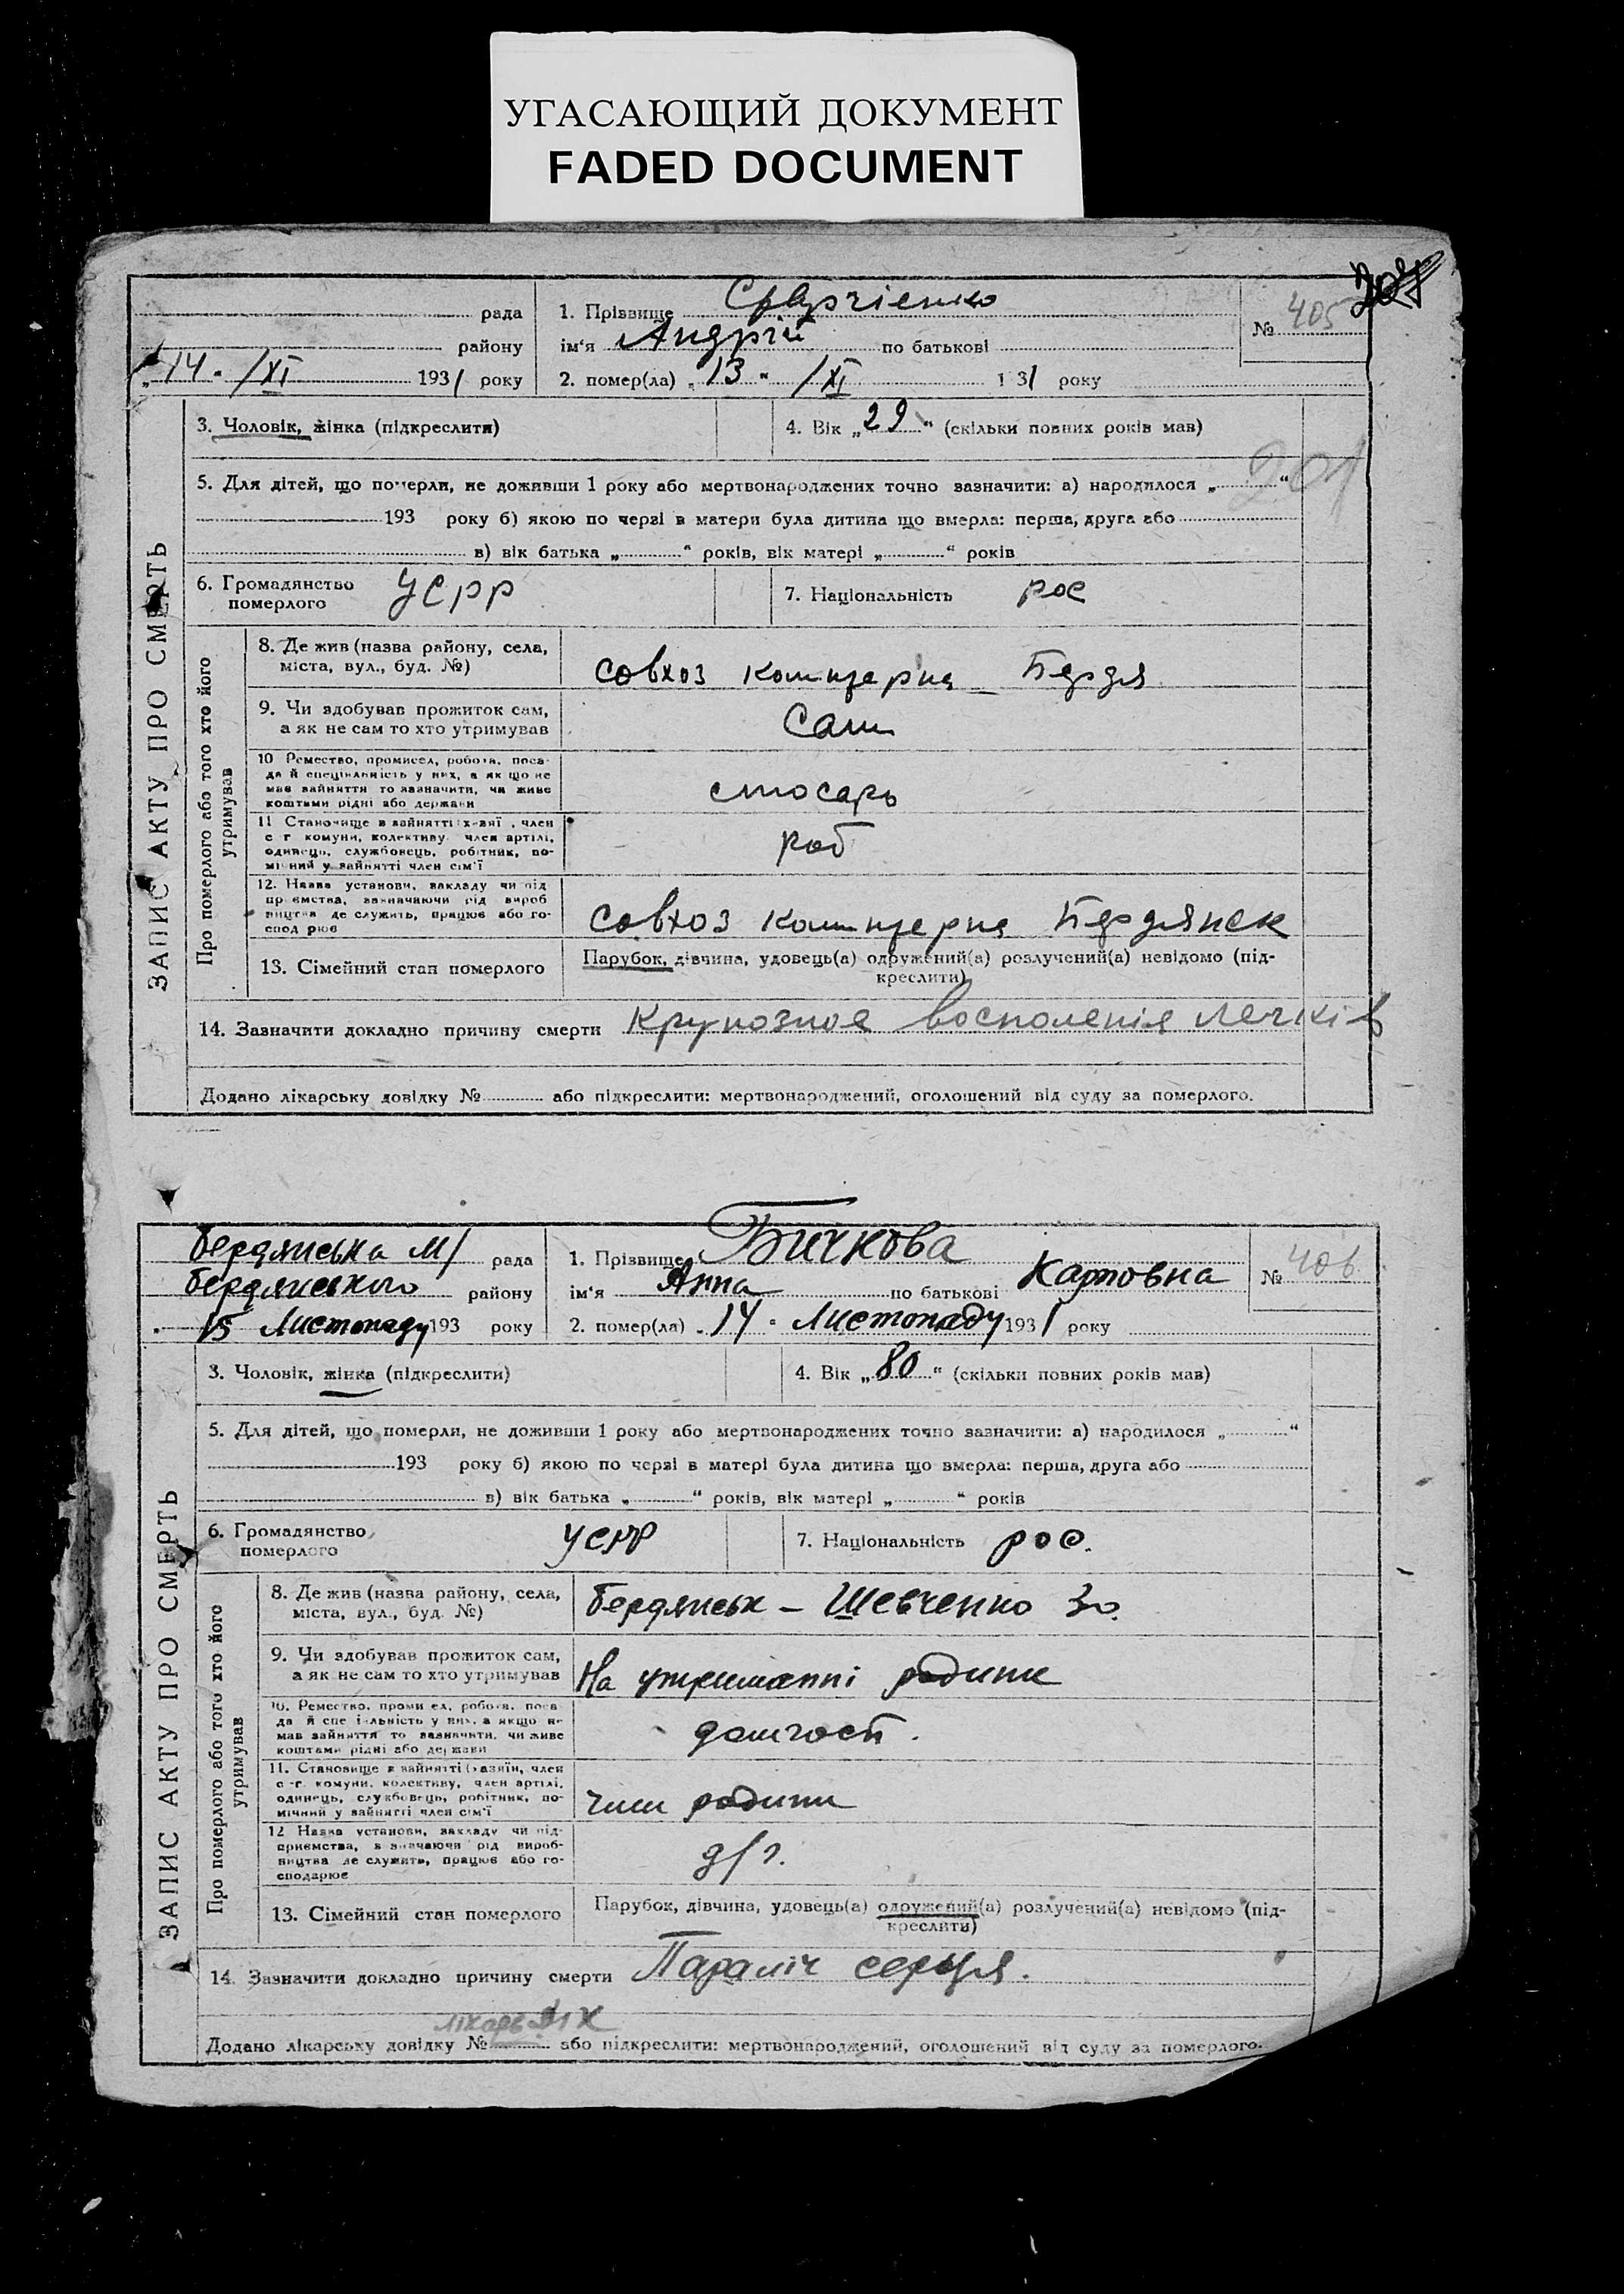 УГАСАЮЩИЙ ДОКУМЕНТ
FADED DOCUMENT
рада
1. Прізвище
№ 405
району
ім'я Андрій по батькові
„14" /XI 1931 року
2. помер(ла) „13" /XI 131 року
ЗАПИС АКТУ ПРО СМЕРТЬ
3. Чоловік, жінка (підкреслити)
4. Вік „29" (скільки повних років мав)
201
5. Для дітей, що померли, не доживши 1 року або мертвонароджених точно зазначити: а) народилося „ "
193 року б) якою по черзі в матери була дитина що вмерла: перша, друга або
в) вік батька „ " років, вік матері „ " років
6. Громадянство померлого УСРР
7. Національність рос
Про померлого або того хто його утримував
8. Де жив (назва району, села,
міста, вул., буд. №)
совхоз
9. Чи здобував прожиток сам,
а як не сам то хто утримував
Сам
10 Ремество, промисел, робота, поса-
да й спеціяльність у них, а як що не
мав зайняття то зазначити, чи живе
коштами рідні або держави
слюсарь
11 Становище в зайнятті , член
с г комуни, колективу, член артілі,
одинець, службовець, робітник, по-
мічний у зайнятті член сім'ї
роб
12. Назва установи, закладу чи під
приємства, зазначаючи рід вироб
ництва де служить, працює або го-
спод рює
совхоз Бердянск
13. Сімейний стан померлого
Парубок, дівчина, удовець(а) одружений(а) розлучений(а) невідомо (під-
креслити)
14. Зазначити докладно причину смерти Крупозное восполенія легків
Додано лікарську довідку № або підкреслити: мертвонароджений, оголошений від суду за померлого.
Бердянська М/ рада
1. Прізвище Бичкова
№ 406
Бердянського району
ім'я Анна по батькові Карповна
15 Листопаду 193 року
2. помер(ла) „14" Листопаду 1931 року
ЗАПИС АКТУ ПРО СМЕРТЬ
3. Чоловік, жінка (підкреслити)
4. Вік „80" (скільки повних років мав)
5. Для дітей, що померли, не доживши 1 року або мертвонароджених точно зазначити: а) народилося „ "
193 року б) якою по черзі в матері була дитина що вмерла: перша, друга або
в) вік батька „ " років, вік матері „ " років
6. Громадянство померлого УСРР
7. Національність рос.
Про померлого або того хто його утримував
8. Де жив (назва району, села,
міста, вул., буд. №)
Бердянськ – Шевченко 30
9. Чи здобував прожиток сам,
а як не сам то хто утримував
На утриманні родини
10. Ремество, проми ел, робота, поса-
да й спе іяльність у них, а якщо не
мав зайняття то зазначити, чи живе
коштами рідні або держави
домгосп.
11. Становище в зайнятті (хазяїн, член
с-г. комуни, колективу, член артілі,
одинець, службовець, робітник, по-
мічний у зайнятті член сім'ї
член родини
12 Назва установи, закладу чи під-
приємства, зазначаючи рід вироб-
ництва де служить, працює або го-
сподарює
д/г.
13. Сімейний стан померлого
Парубок, дівчина, удовець(а) одружений(а) розлучений(а) невідомо (під-
креслити)
14. Зазначити докладно причину смерти Параліч серця.
лікарь
Додано лікарську довідку № або підкреслити: мертвонароджений, оголошений від суду за померлого.